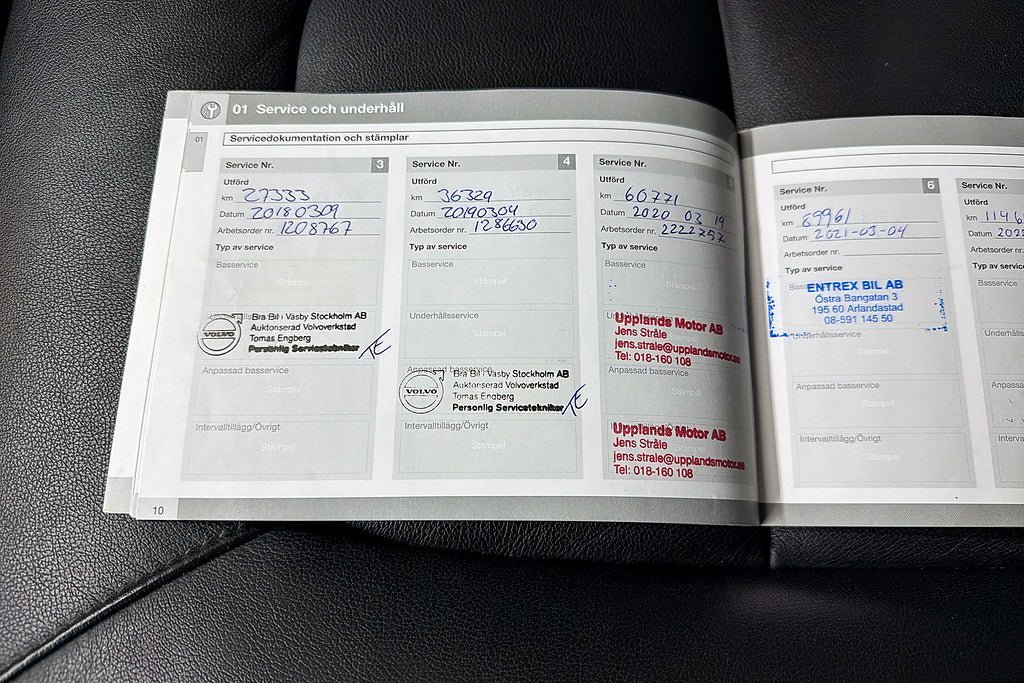 01 Service och underhåll
01
Servicedokumentation och stämplar
Service Nr. 3
Utförd
km 27333
Datum 20180309
Arbetsorder nr. 1208767
Typ av service
Basservice
Stämpel
VOLVO
Bra Bil i Väsby Stockholm AB
Auktoriserad Volvoverkstad
Tomas Engberg
Personlig Servicetekniker
TE
Anpassad basservice
Stämpel
Intervalltillägg/Övrigt
Stämpel
Service Nr. 4
Utförd
km 36329
Datum 20190304
Arbetsorder nr. 1286630
Typ av service
Basservice
Stämpel
Underhållsservice
Stämpel
Anpassad basservice
VOLVO
Bra Bil i Väsby Stockholm AB
Auktoriserad Volvoverkstad
Tomas Engberg
Personlig Servicetekniker
TE
Intervalltillägg/Övrigt
Stämpel
Service Nr.
Utförd
km 60771
Datum 2020 03 19
Arbetsorder nr. 2222757
Typ av service
Basservice
Stämpel
Upplands Motor AB
Jens Stråle
jens.strale@upplandsmotor.se
Tel: 018-160 108
Anpassad basservice
Stämpel
Upplands Motor AB
Jens Stråle
jens.strale@upplandsmotor.se
Tel: 018-160 108
10
Service Nr. 6
Utförd
km 89961
Datum 2021-03-04
Arbetsorder nr.
Typ av service
ENTREX BIL AB
Östra Bangatan 3
195 60 Arlandastad
08-591 145 50
Underhållsservice
Stämpel
Anpassad basservice
Stämpel
Intervalltillägg/Övrigt
Stämpel
Service Nr.
Utförd
km
Datum
Arbetsorder
Typ av
Basservice